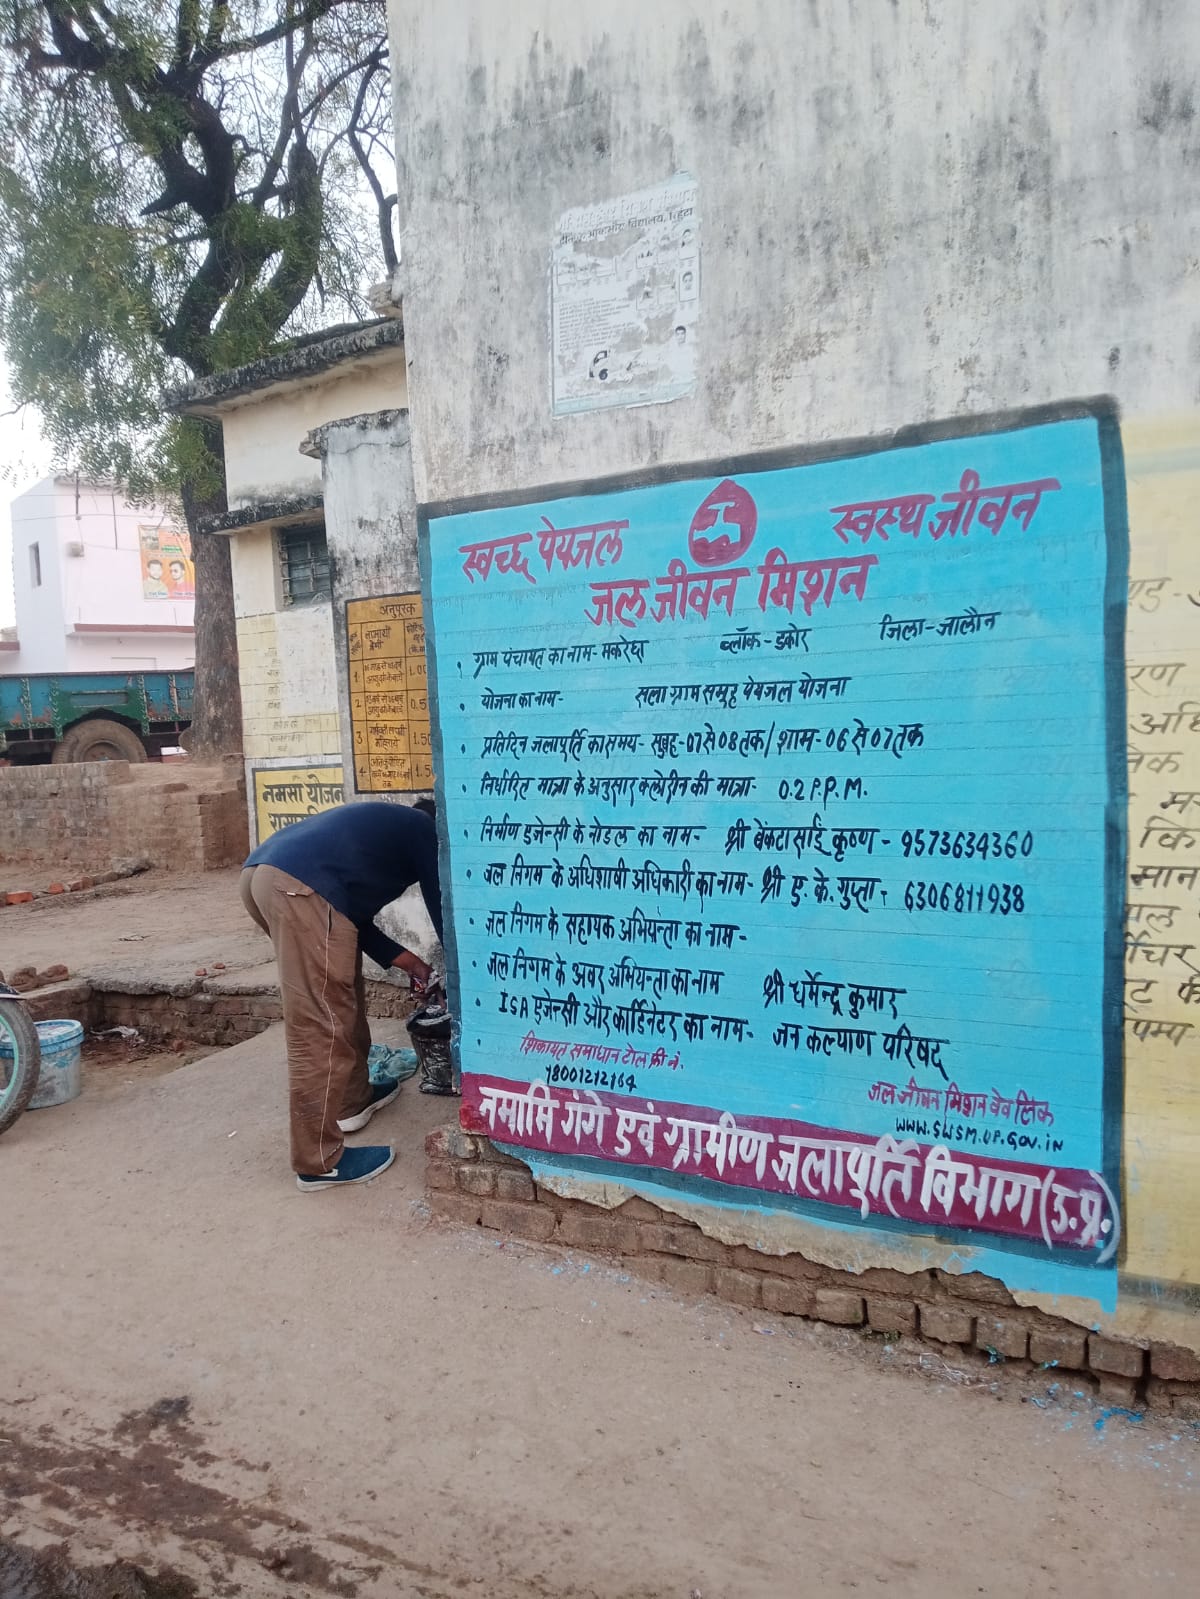 विद्यालय, रिहुटा
स्वच्छ पेयजल
स्वस्थ जीवन
जल जीवन मिशन
ग्राम पंचायत का नाम- मकरेछा ब्लॉक- डकोर जिला- जालौन
योजना का नाम- सला ग्राम समूह पेयजल योजना
प्रतिदिन जलापूर्ति का समय- सुबह- 07 से 08 तक / शाम- 06 से 07 तक
निर्धारित मात्रा के अनुसार क्लोरीन की मात्रा- 0.2 P.P.M.
निर्माण एजेन्सी के नोडल का नाम- श्री बेंकटा साई कृष्ण - 9573634360
जल निगम के अधिशाषी अधिकारी का नाम- श्री ए. के. गुप्ता - 6306811938
जल निगम के सहायक अभियन्ता का नाम-
जल निगम के अवर अभियन्ता का नाम श्री धर्मेन्द्र कुमार
ISA एजेन्सी और कार्डिनेटर का नाम- जन कल्याण परिषद
शिकायत समाधान टोल फ्री नं.
18001212164
जल जीवन मिशन वेव लिंक
WWW.SWSM.UP.GOV.IN
नमामि गंगे एवं ग्रामीण जलापूर्ति विभाग (उ.प्र.)
अनुपूरक
1 1.00
2 0.5
3 1.50
4 1.50
नमसा योजन